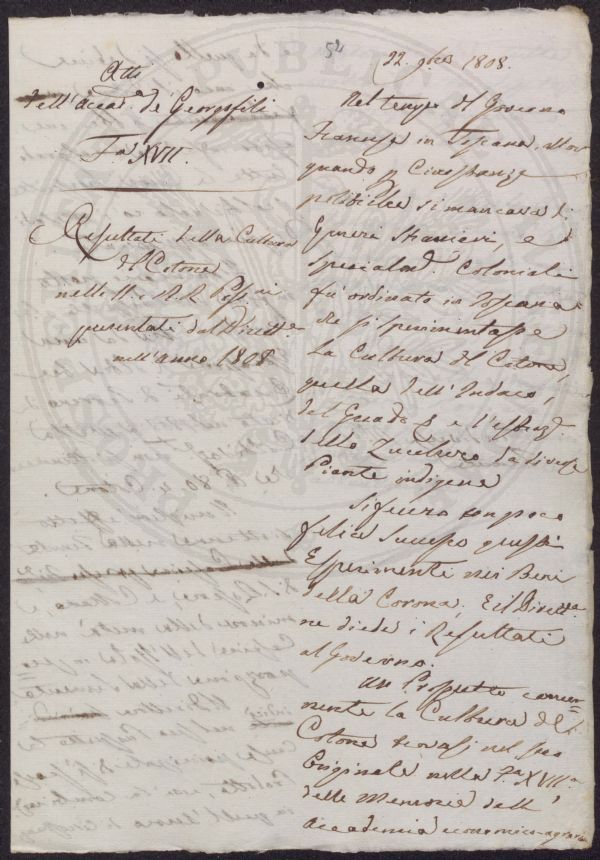 52
Atti
dell'Accad. de' Georgofili
Fa XVII.
Resultati della Cultura
del Cotone
nelle II. e RR. Poss.ni
presentati dal Dirett.e
nell'anno 1808
22. 9bre 1808.
Nel tempo del Governo
Francese in Toscana, allor
quando p Circostanze
politiche si mancava di
Generi Stranieri, e
specialm. Coloniali
fù ordinato in Toscana
che si sperimentasse
la Cultura del Cotone,
quella dell'Indaco,
del Guado & e l'estraz.
dello Zucchero da diverse
Piante indigene
Si fecero con poco
felice Successo questi
Esperimenti nei Beni
della Corona, E il Dirett.e
ne diede i Resultati
al Governo.
Un Prospetto concer=
nente la Cultura del
Cotone trovasi nel suo
Originale nella Fa XVII.
delle Memorie dell'
Accademia economico-agraria